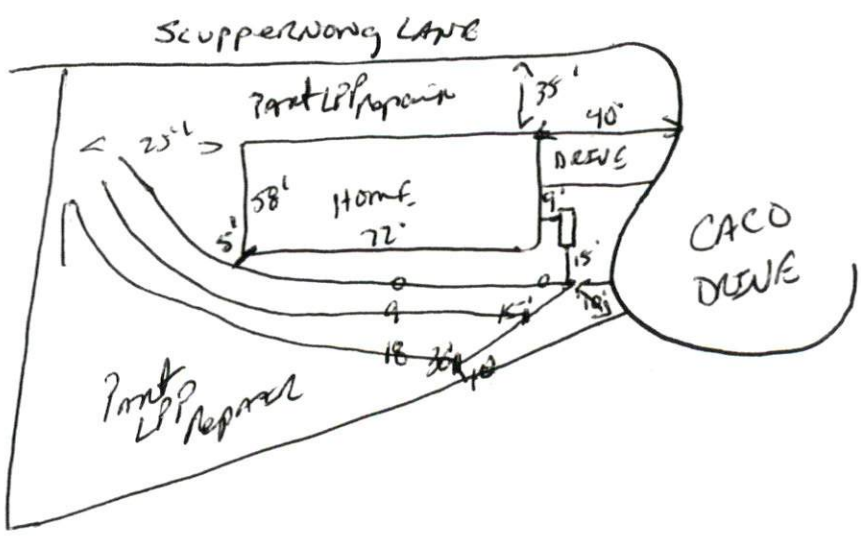 ScuppeRNONg LANE
Part LPP repair
35'
40'
25'
DRIVE
58'
Home
9'
72'
5'
15'
CACO
DRIVE
0
0
10'
9
15'
18
30'
10
Part
LPP repair